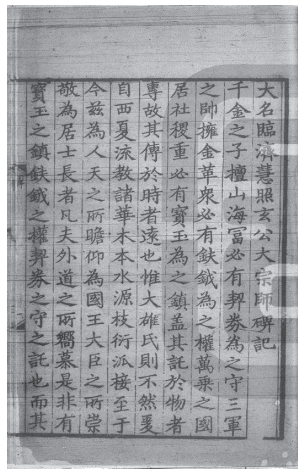 大名臨濟慧照玄公大宗師碑記
千金之子擅山海冨必有契券為之守三軍
之帥擁金革衆必有鈇鉞為之權萬乗之國
居社稷重必有寳玉為之鎮盖其託於物者
専故其傳於時者逺也惟大雄氏則不然爰
自西夏流教諸華木本水源枝衍派接至于
今兹為人天之所瞻仰為國王大臣之所崇
敬為居士長者凡夫外道之所嚮慕是非有
寳玉之鎮鈇鉞之權契券之守之託也而其